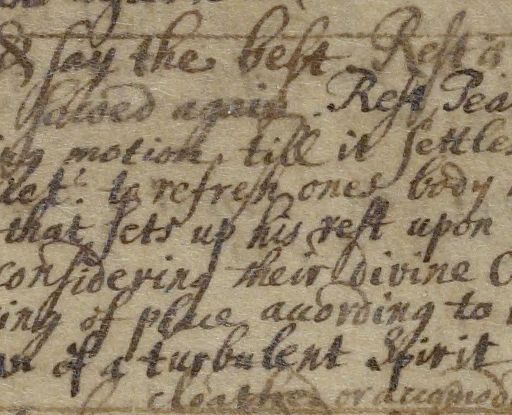 & say the best Rest is
saved again. Rest Pea
ing motion, till it settles
to refresh ones body
that sets up his rest upon
considering their divine O
ing of place according to
an of a turbulent Spirit
cloathes or accomod